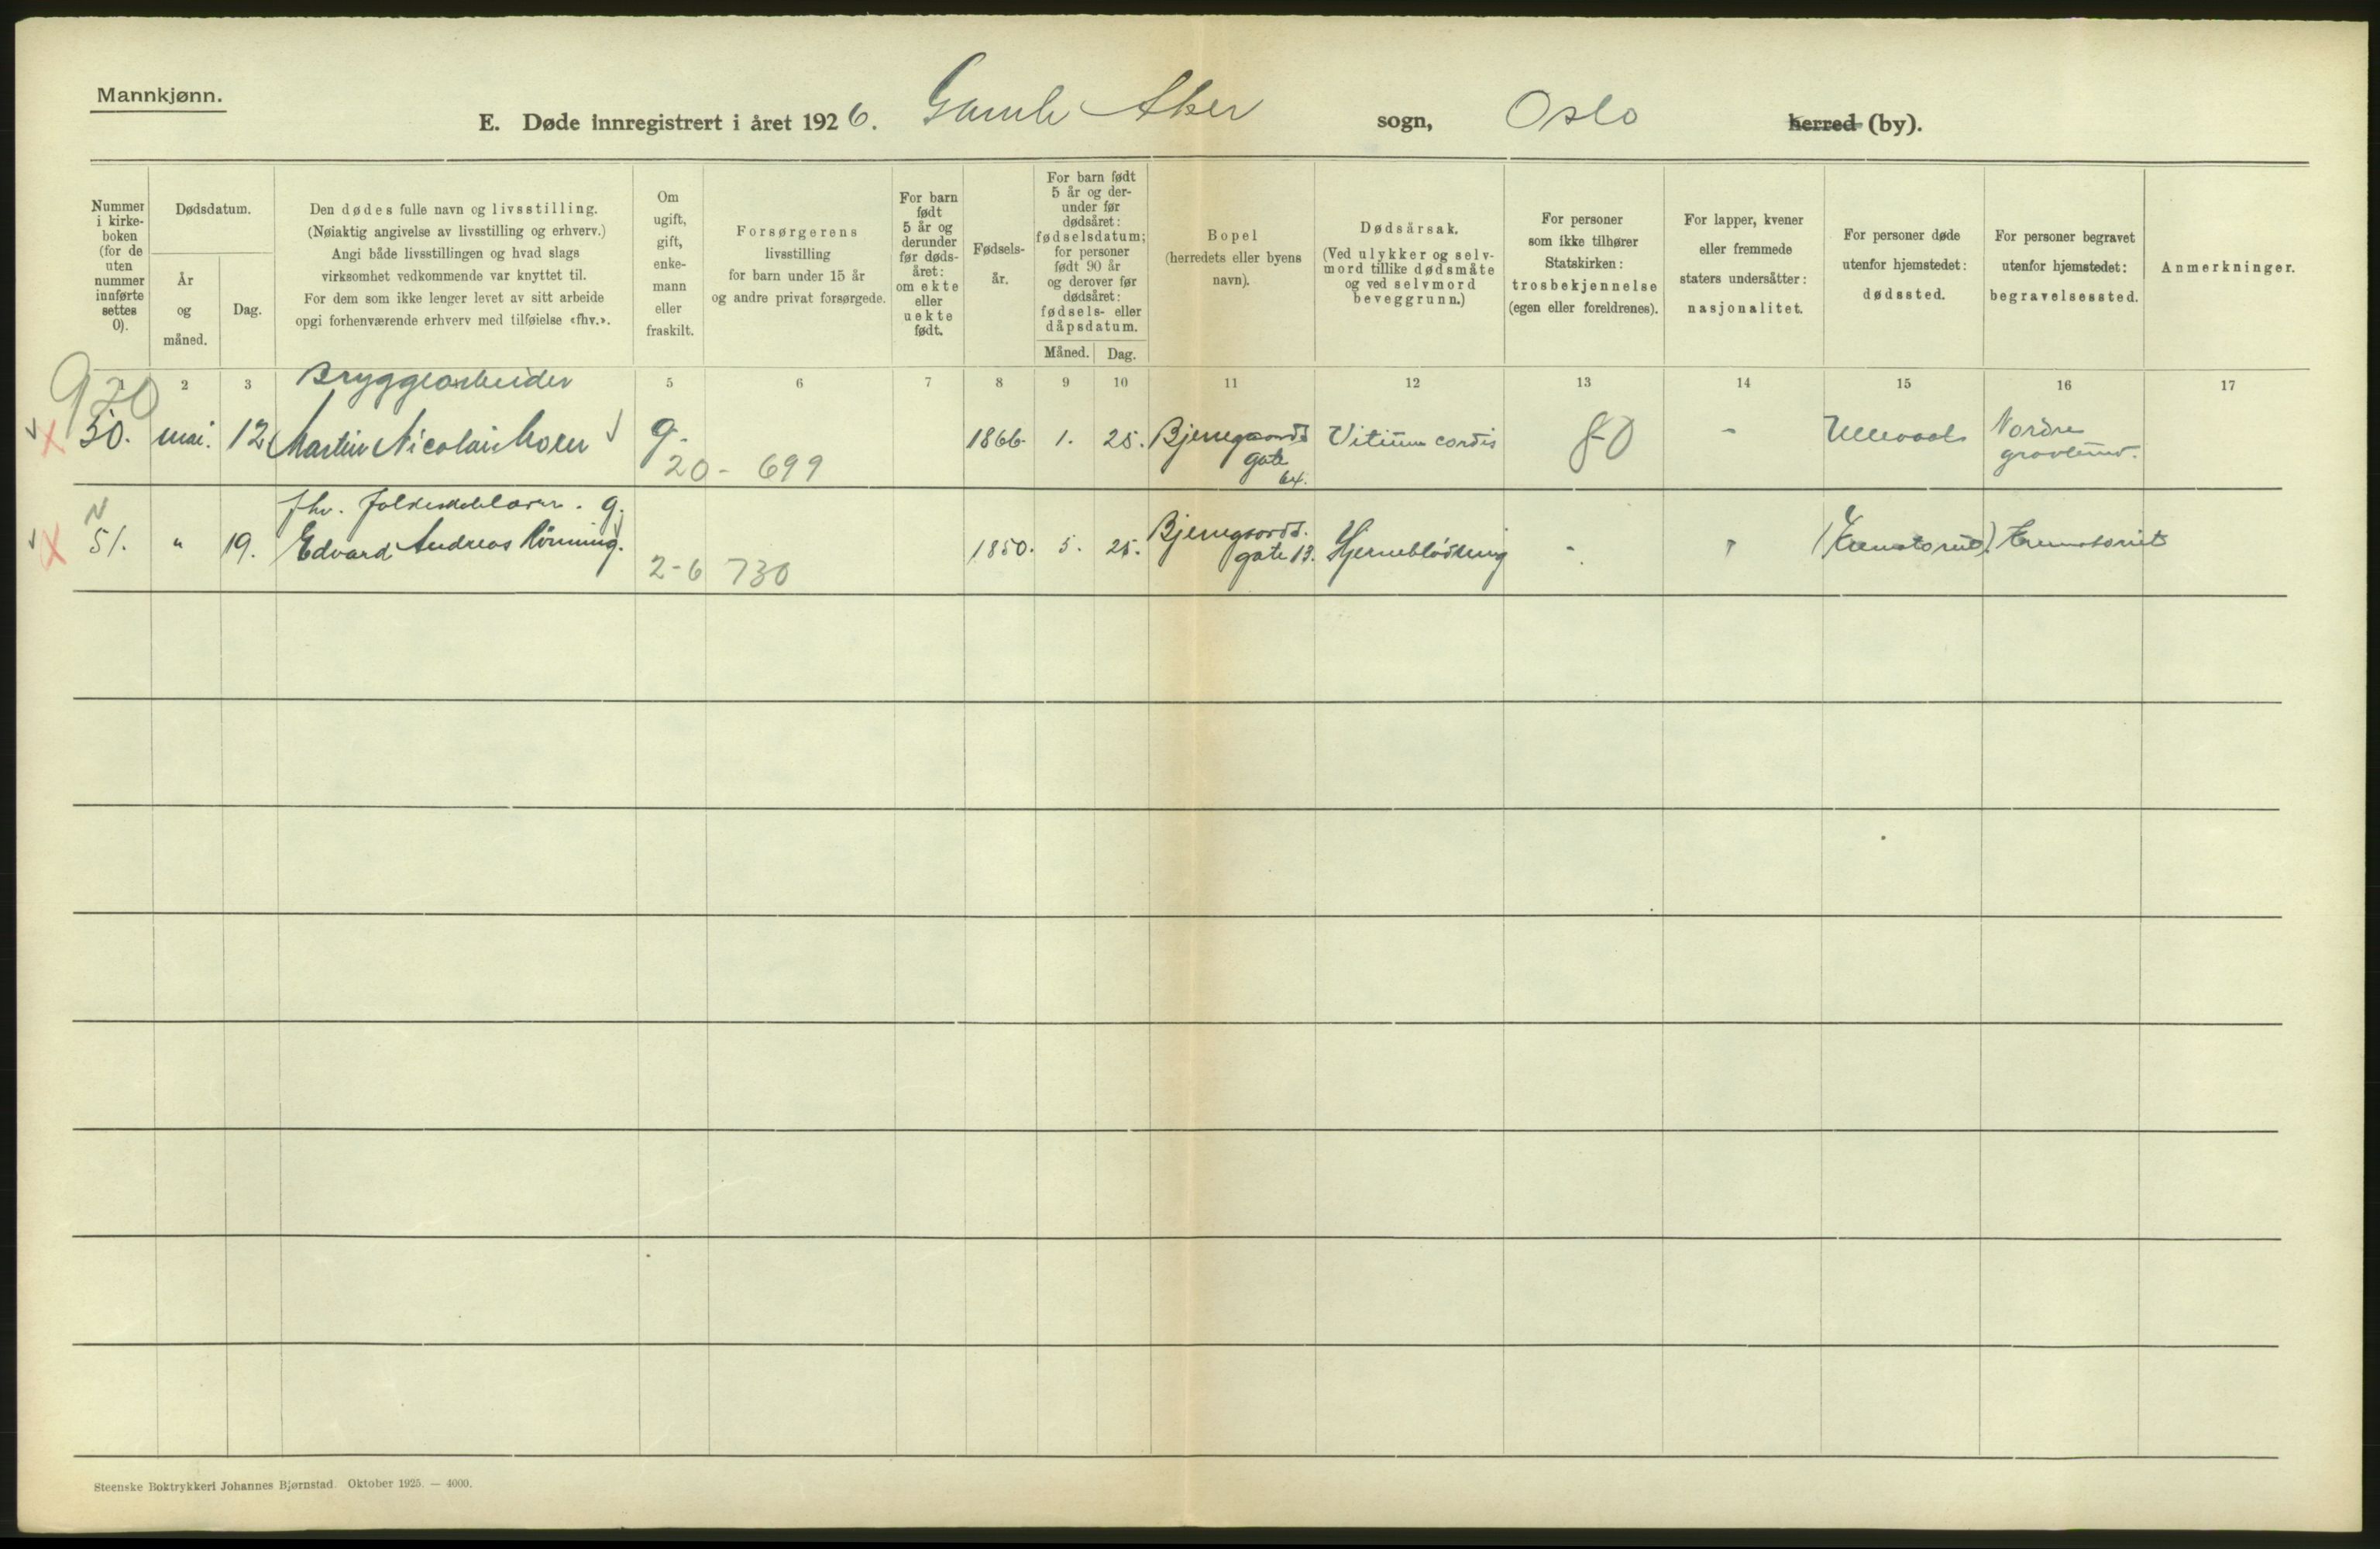 Mannkjønn.
E. Døde innregistrert i året 1926. Gamle Aker sogn, Oslo herred (by).
Nummer i kirkeboken (for de uten nummer innførte settes 0).
Dødsdatum.
År og måned.
Dag.
Den dødes fulle navn og livsstilling.
(Nøiaktig angivelse av livsstilling og erhverv.)
Angi både livsstillingen og hvad slags
virksomhet vedkommende var knyttet til.
For dem som ikke lenger levet av sitt arbeide
opgi forhenværende erhverv med tilføielse «fhv.».
Om ugift, gift, enkemann eller fraskilt.
Forsørgerens
livsstilling
for barn under 15 år
og andre privat forsørgede.
For barn født 5 år og derunder før dødsåret: om ekte eller uekte født.
Fødselsår.
For barn født 5 år og derunder før dødsåret: fødselsdatum; for personer født 90 år og derover før dødsåret: fødsels- eller dåpsdatum.
Måned.
Dag.
Bopel
(herredets eller byens
navn).
Dødsårsak.
(Ved ulykker og selvmord tillike dødsmåte og ved selvmord beveggrunn.)
For personer
som ikke tilhører
Statskirken:
trosbekjennelse
(egen eller foreldrenes).
For lapper, kvener
eller fremmede
staters undersåtter:
nasjonalitet.
For personer døde
utenfor hjemstedet:
dødssted.
For personer begravet
utenfor hjemstedet:
begravelsessted.
Anmerkninger.
2 3 5 6 7 8 9 10 11 12 13 14 15 16 17
970
Bryggearbeider
50. mai. 12 Martin Nicolai Moen g. 1866 1. 25. Bjerregaards Vitium cordis 80 - Ullevaal Nordre
gate
64.
gravlund.
20 - 699
N
fhv. g.
51. " 19. Edvard Andreas Rönning. 1850. 5. 25. Bjerregaards.
gate 13. Hjerneblödning - (Krematoriet). Krematoriet
2-6 730
Steenske Boktrykkeri Johannes Bjørnstad. Oktober 1925. — 4000.